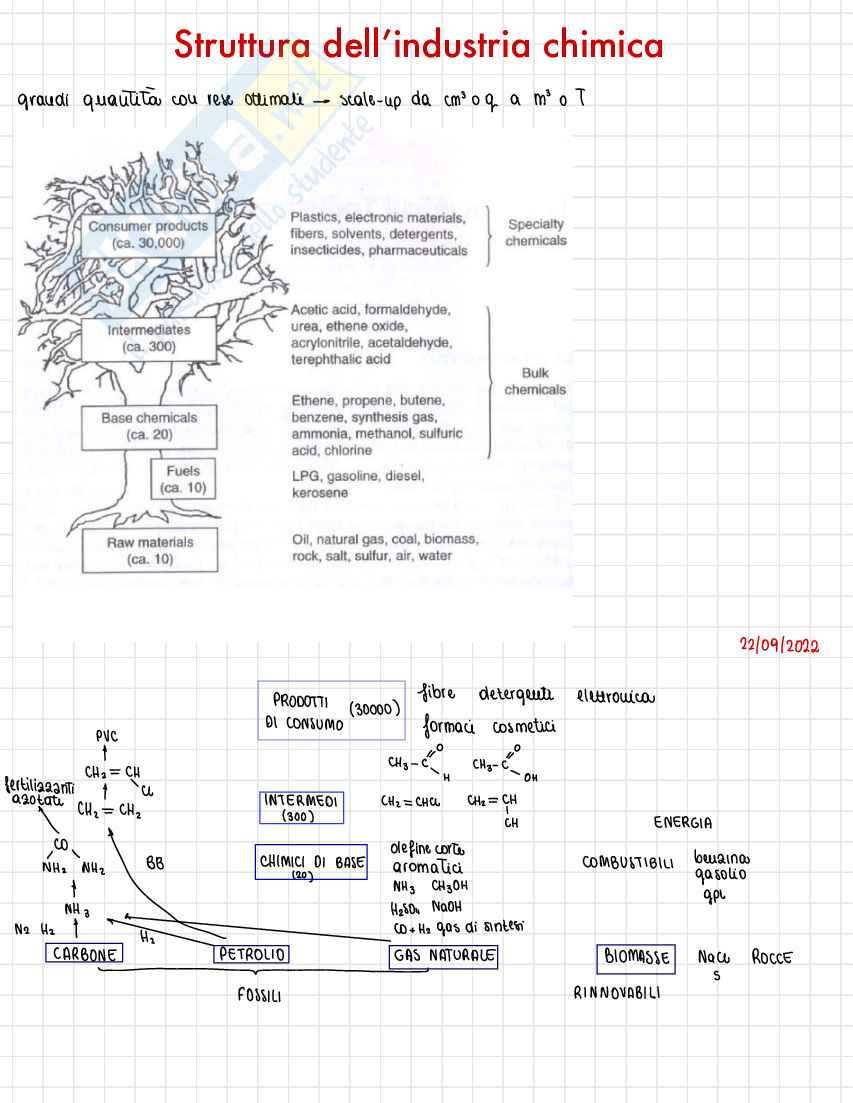 Struttura dell'industria chimica
grandi quantità con rese ottimali → scale-up da cm³ o g a m³ o T
Consumer products
(ca. 30,000)
Plastics, electronic materials,
fibers, solvents, detergents,
insecticides, pharmaceuticals
Specialty
chemicals
Intermediates
(ca. 300)
Acetic acid, formaldehyde,
urea, ethene oxide,
acrylonitrile, acetaldehyde,
terephthalic acid
Bulk
chemicals
Base chemicals
(ca. 20)
Ethene, propene, butene,
benzene, synthesis gas,
ammonia, methanol, sulfuric
acid, chlorine
Fuels
(ca. 10)
LPG, gasoline, diesel,
kerosene
Raw materials
(ca. 10)
Oil, natural gas, coal, biomass,
rock, salt, sulfur, air, water
22/09/2022
PRODOTTI
DI CONSUMO (30000)
fibre detergenti elettronica
formaci cosmetici
PVC
CH₂=CH
Cl
CH₂=CH₂
fertilizzanti
azotati
CO
NH₂ NH₂
BB
NH₃
N2 H₂
H₂
CARBONE
PETROLIO
GAS NATURALE
FOSSILI
INTERMEDI
(300)
CH₃-C
O
H
CH₃-C
O
OH
CH₂=CHCl
CH₂=CH
CH
CHIMICI DI BASE
(20)
olefine corte
aromatici
NH₃ CH₃OH
H₂SO₄ NaOH
CO+H₂ gas di sintesi
ENERGIA
COMBUSTIBILI
benzina
gasolio
gpl
BIOMASSE
NaCl
S
ROCCE
RINNOVABILI